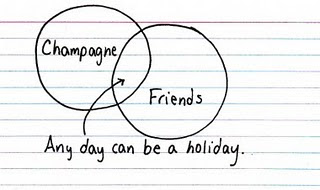 Champagne
Friends
Any day can be a holiday.